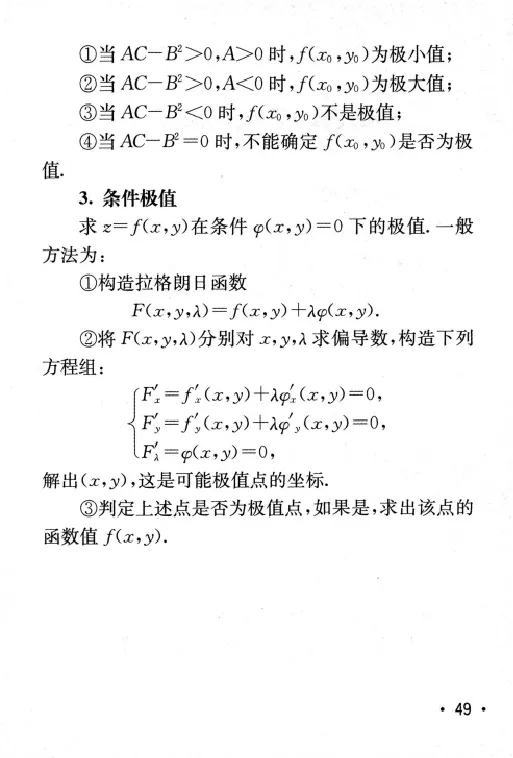 ①当 AC－B²＞0,A＞0 时,f(x₀,y₀)为极小值;
②当 AC－B²＞0,A＜0 时,f(x₀,y₀)为极大值;
③当 AC－B²＜0 时,f(x₀,y₀)不是极值;
④当 AC－B²＝0 时,不能确定 f(x₀,y₀)是否为极
值.
3. 条件极值
求 z＝f(x,y)在条件 φ(x,y)＝0 下的极值. 一般
方法为:
①构造拉格朗日函数
F(x,y,λ)＝f(x,y)＋λφ(x,y).
②将 F(x,y,λ)分别对 x,y,λ 求偏导数,构造下列
方程组:
F′ₓ＝f′ₓ(x,y)＋λφ′ₓ(x,y)＝0,
F′y＝f′y(x,y)＋λφ′y(x,y)＝0,
F′λ＝φ(x,y)＝0,
解出(x,y),这是可能极值点的坐标.
③判定上述点是否为极值点,如果是,求出该点的
函数值 f(x,y).
· 49 ·